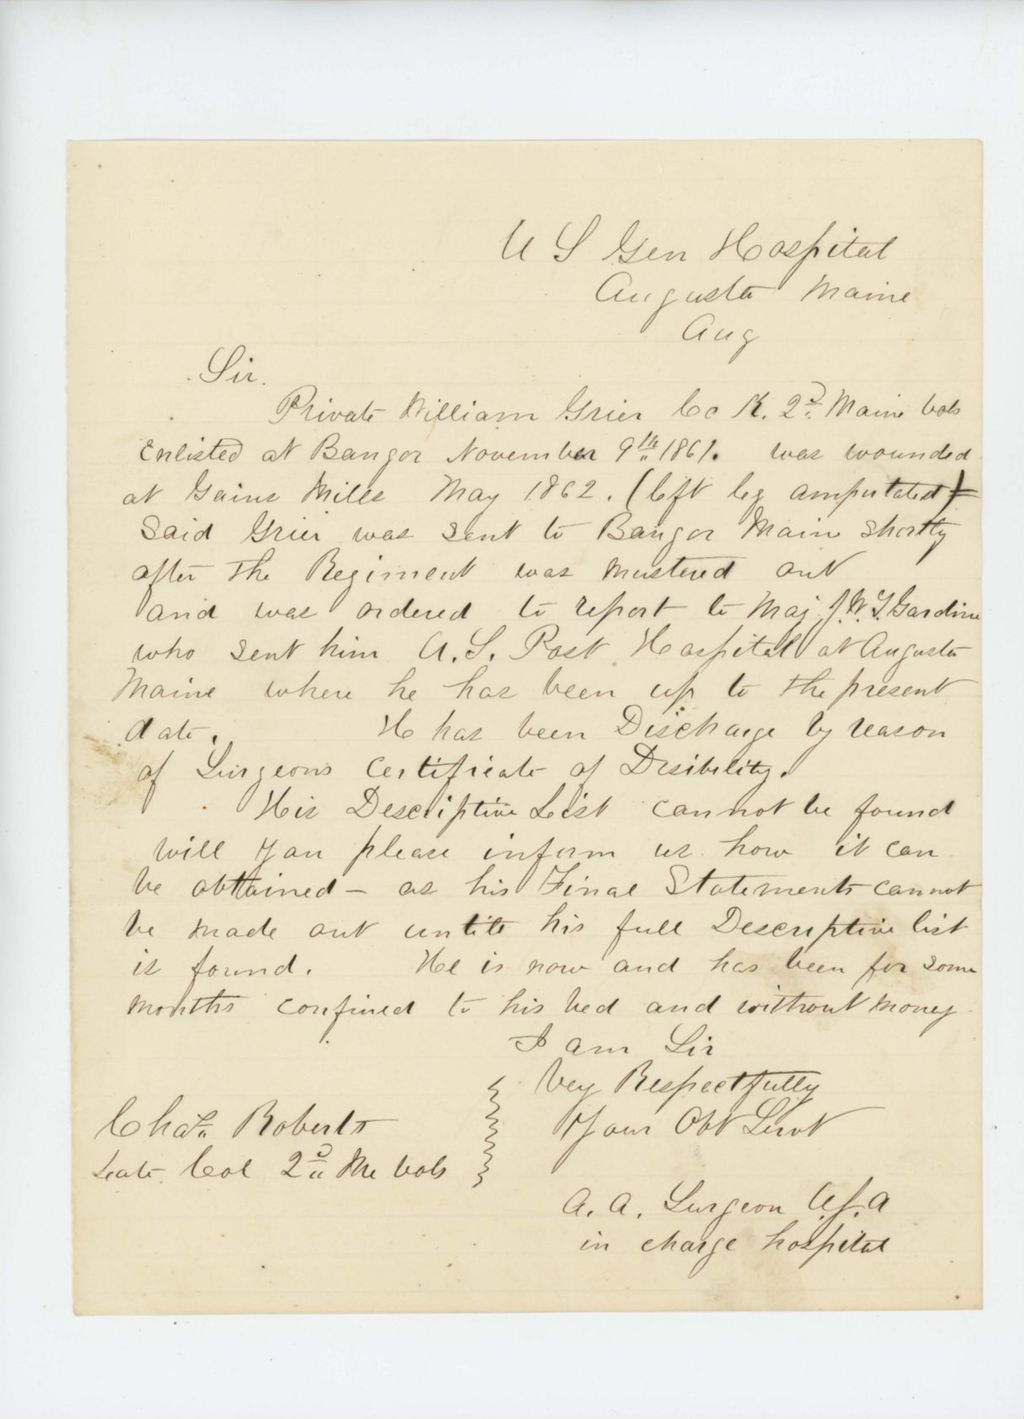 U S Gen Hospital
Augusta Maine
Aug
Sir.
Private William Grier Co K. 2d. Maine Vols
Enlisted at Bangor November 9th 1861. was wounded
at Gains Mills May 1862. (left leg amputated)
Said Grier was sent to Bangor Main shortly
after the Regiment was mustered out
and was ordered to report to Maj. J. W. T. Gardine
who sent him U. S. Post Hospital at Augusta
Maine where he has been up to the present
date. He has been Discharge by reason
of Surgeons Certificate of Disibility.
His Descriptive List cannot be found
will you please inform us how it can
be obtained – as his Final Statements cannot
be made out untill his full Descriptive list
is found. He is now and has been for some
months confined to his bed and without money
I am Sir
Vey Respectfully
Your Obt Servt
Chas. Roberts
Late Col 2d Me Vols
A. A. Surgeon U.S.A
in charge hospital